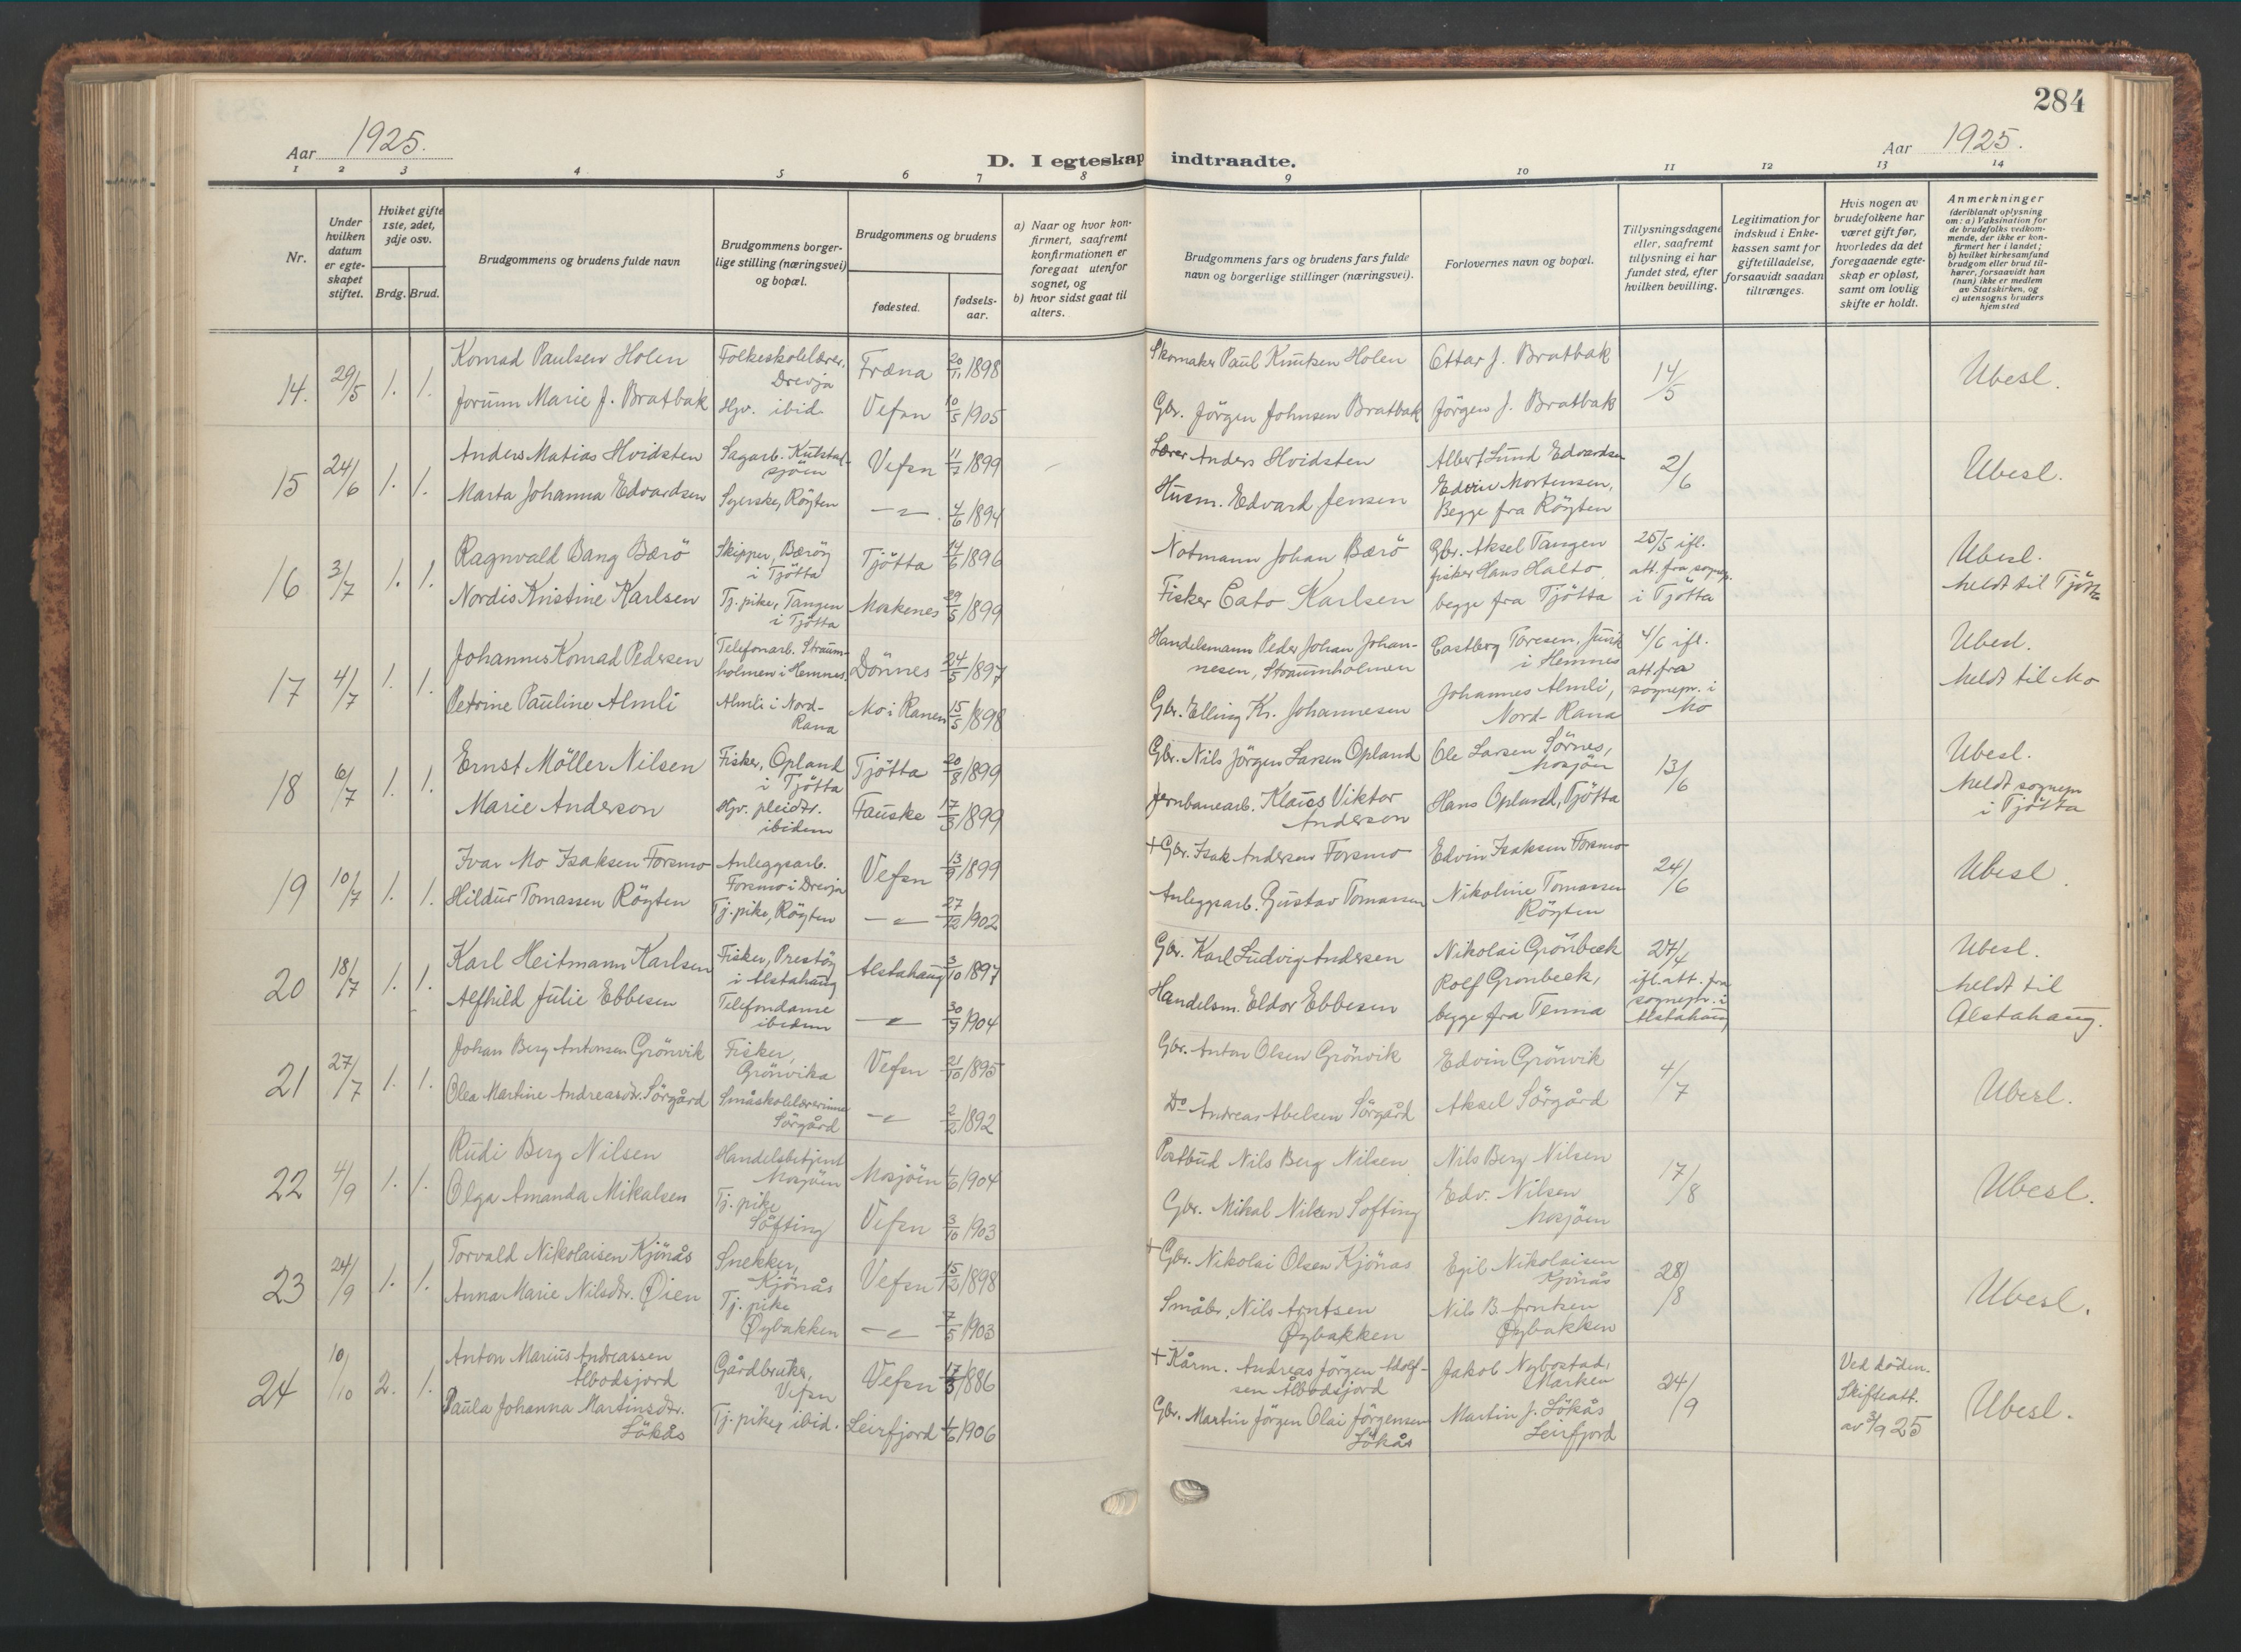 284
Aar 1925.
D. I egteskap indtraadte.
Aar 1925.
1 2 3 4 5 6 7 8 9 10 11 12 13 14
Nr.
Under hvilken datum er egteskapet stiftet.
Hviket gifte 1ste, 2det, 3dje osv.
Brdg. Brud.
Brudgommens og brudens fulde navn
Brudgommens borgerlige stilling (næringsvei) og bopæl.
Brudgommens og brudens
fødested.
fødselsaar.
a) Naar og hvor konfirmert, saafremt konfirmationen er foregaat utenfor sognet, og
b) hvor sidst gaat til alters.
Brudgommens fars og brudens fars fulde navn og borgerlige stillinger (næringsvei).
Forlovernes navn og bopæl.
Tillysningsdagene eller, saafremt tillysning ei har fundet sted, efter hvilken bevilling.
Legitimation for indskud i Enkekassen samt for giftetilladelse, forsaavidt saadan tiltrænges.
Hvis nogen av brudefolkene har været gift før, hvorledes da det foregaaende egteskap er opløst, samt om lovlig skifte er holdt.
Anmerkninger
(deriblandt oplysning om: a) Vaksination for de brudefolks vedkommende, der ikke er konfirmert her i landet; b) hvilket kirkesamfund brudgom eller brud tilhører, forsaavidt han (hun) ikke er medlem av Statskirken, og c) utensogns bruders hjemsted
14. 29/5 1. 1.
Konrad Paulsen Holen Folkeskolelærer, Drevja Fræna 20/11 1898 Skomaker Paul Knutsen Holen Ottar J. Bratbak 14/5 Ubesl.
Jorunn Marie J. Bratbak Hjv. ibid. Vefsn 10/5 1905 Gbr. Jörgen Johnsen Bratbak Jörgen J. Bratbak
15 24/6 1. 1.
Anders Matias Hvidsten Sagarb. Kulstadsjöen Vefsn 11/7 1899 Lærer Anders Hvidsten Albert Lund Edvardsen 2/6 Ubesl.
Marta Johanna Edvardsen Syerske, Röyten -"- 4/6 1894 Husm. Edvard Jensen Edvin Mortensen, Begge fra Röyten
16 3/7 1. 1.
Ragnvald Bang Bærö Skipper, Bæröy i Tjötta Tjötta 14/6 1896 Notmann Johan Bærö Gbr. Aksel Tangen 25/5 ifl. att. fra sognep. i Tjötta Ubesl. meldt til Tjötta
Nordis Kristine Karlsen Tj. pike, Tangen i Tjötta Moskenes 29/5 1899 Fisker Cato Karlsen fisker Hans Halto, begge fra Tjötta
17 4/7 1. 1.
Johannes Konrad Pedersen Telefonarb. Straumholmen i Hemnes. Dönnes 24/5 1897 Handelsmann Peder Johan Johannesen, Straumholmen Castberg Toresen, i Hemnes 4/6 ifl. att. fra sognepr. i Mo Ubesl. meldt til Mo
Petrine Pauline Almli Almli i Nord-Rana Mo i Ranen 15/5 1898 Gbr. Elling Kr. Johannesen Johannes Almli, Nord-Rana
18 6/7 1. 1.
Ernst Möller Nilsen Fisker, Opland i Tjötta Tjötta 20/8 1899 Gbr. Nils Jörgen Larsen Opland Ole Larsen Sörnes, Mosjöen 13/6 Ubesl. meldt sognepr. i Tjötta
Marie Anderson Hjv. pleidtr. ibidem Fauske 17/3 1899 Jernbanearb. Klaus Viktor Anderson Hans Opland, Tjötta
19 10/7 1. 1.
Ivar Mo Isaksen Forsmo Anleggsarb. Forsmo i Drevja Vefsn 13/9 1899 + Gbr. Isak Andersen Forsmo Edvin Isaksen Forsmo 24/6 Ubesl.
Hildur Tomassen Röyten Tj. pike, Röyten -"- 27/12 1902 Anleggsarb. Gustav Tomassen Nikoline Tomassen Röyten
20 18/7 1. 1.
Karl Heitmann Karlsen Fisker, Prestöy i Alstahaug Alstahaug 3/10 1897 Gbr. Karl Ludvig Andersen Nikolai Grönbeck 27/4 ifl. att. fra sognepr. i Alstahaug Ubesl. meldt til Alstahaug.
Alfhild Julie Ebbesen Telefondame ibidem -"- 30/9 1904 Handelsm. Eldor Ebbesen Rolf Gronbeck, begge fra Tenna
21 27/7 1. 1.
Johan Berg Antonsen Grönvik Fisker, Grönvika Vefsn 21/10 1895 Gbr. Anton Olsen Grönvik Edvin Grönvik 4/7 Ubesl.
Olea Martine Andreasdtr. Sörgård Småskolelærerinne Sörgård -"- 2/2 1892 Do Andreas Abelsen Sörgård Aksel Sörgård
22 4/9 1. 1.
Rudi Berg Nilsen Handelsbetjent Mosjöen Mosjöen 1/6 1904 Postbud Nils Berg Nilsen Nils Berg Nilsen 17/8 Ubesl.
Olga Amanda Mikalsen Tj. pike Söfting Vefsn 3/10 1903 Gbr. Mikal Nilsen Softing Edv. Nilsen Mosjöen
23 24/9 1. 1.
Torvald Nikolaisen Kjönås Snekker, Kjönås Vefsn 15/12 1898 + Gbr. Nikolai Olsen Kjönas Egil Nikolaisen Kjönås 28/8 Ubesl.
Anna Marie Nilsdtr. Øien Tj. pike Øybakken -"- 7/5 1903 Småbr. Nils Arntsen Øybakken Nils B. Arntsen Øybakken
24 10/10 2. 1.
Anton Marius Andreassen Ålbodsjord Gårdbruker, Vefsn Vefsn 17/3 1886 + Kårm. Andreas Jörgen Adolfsen Ålbodsjord Jakob Nybostad, Marken 24/9 Ved döden. Skifteatt. av 3/9 25 Ubesl.
Paula Johanna Martinsdtr. Lökås Tj. pike, ibid. Leirfjord 1/6 1906 Gbr. Martin Jörgen Olai Jörgensen Lökås Martin J. Lökås Leirfjord